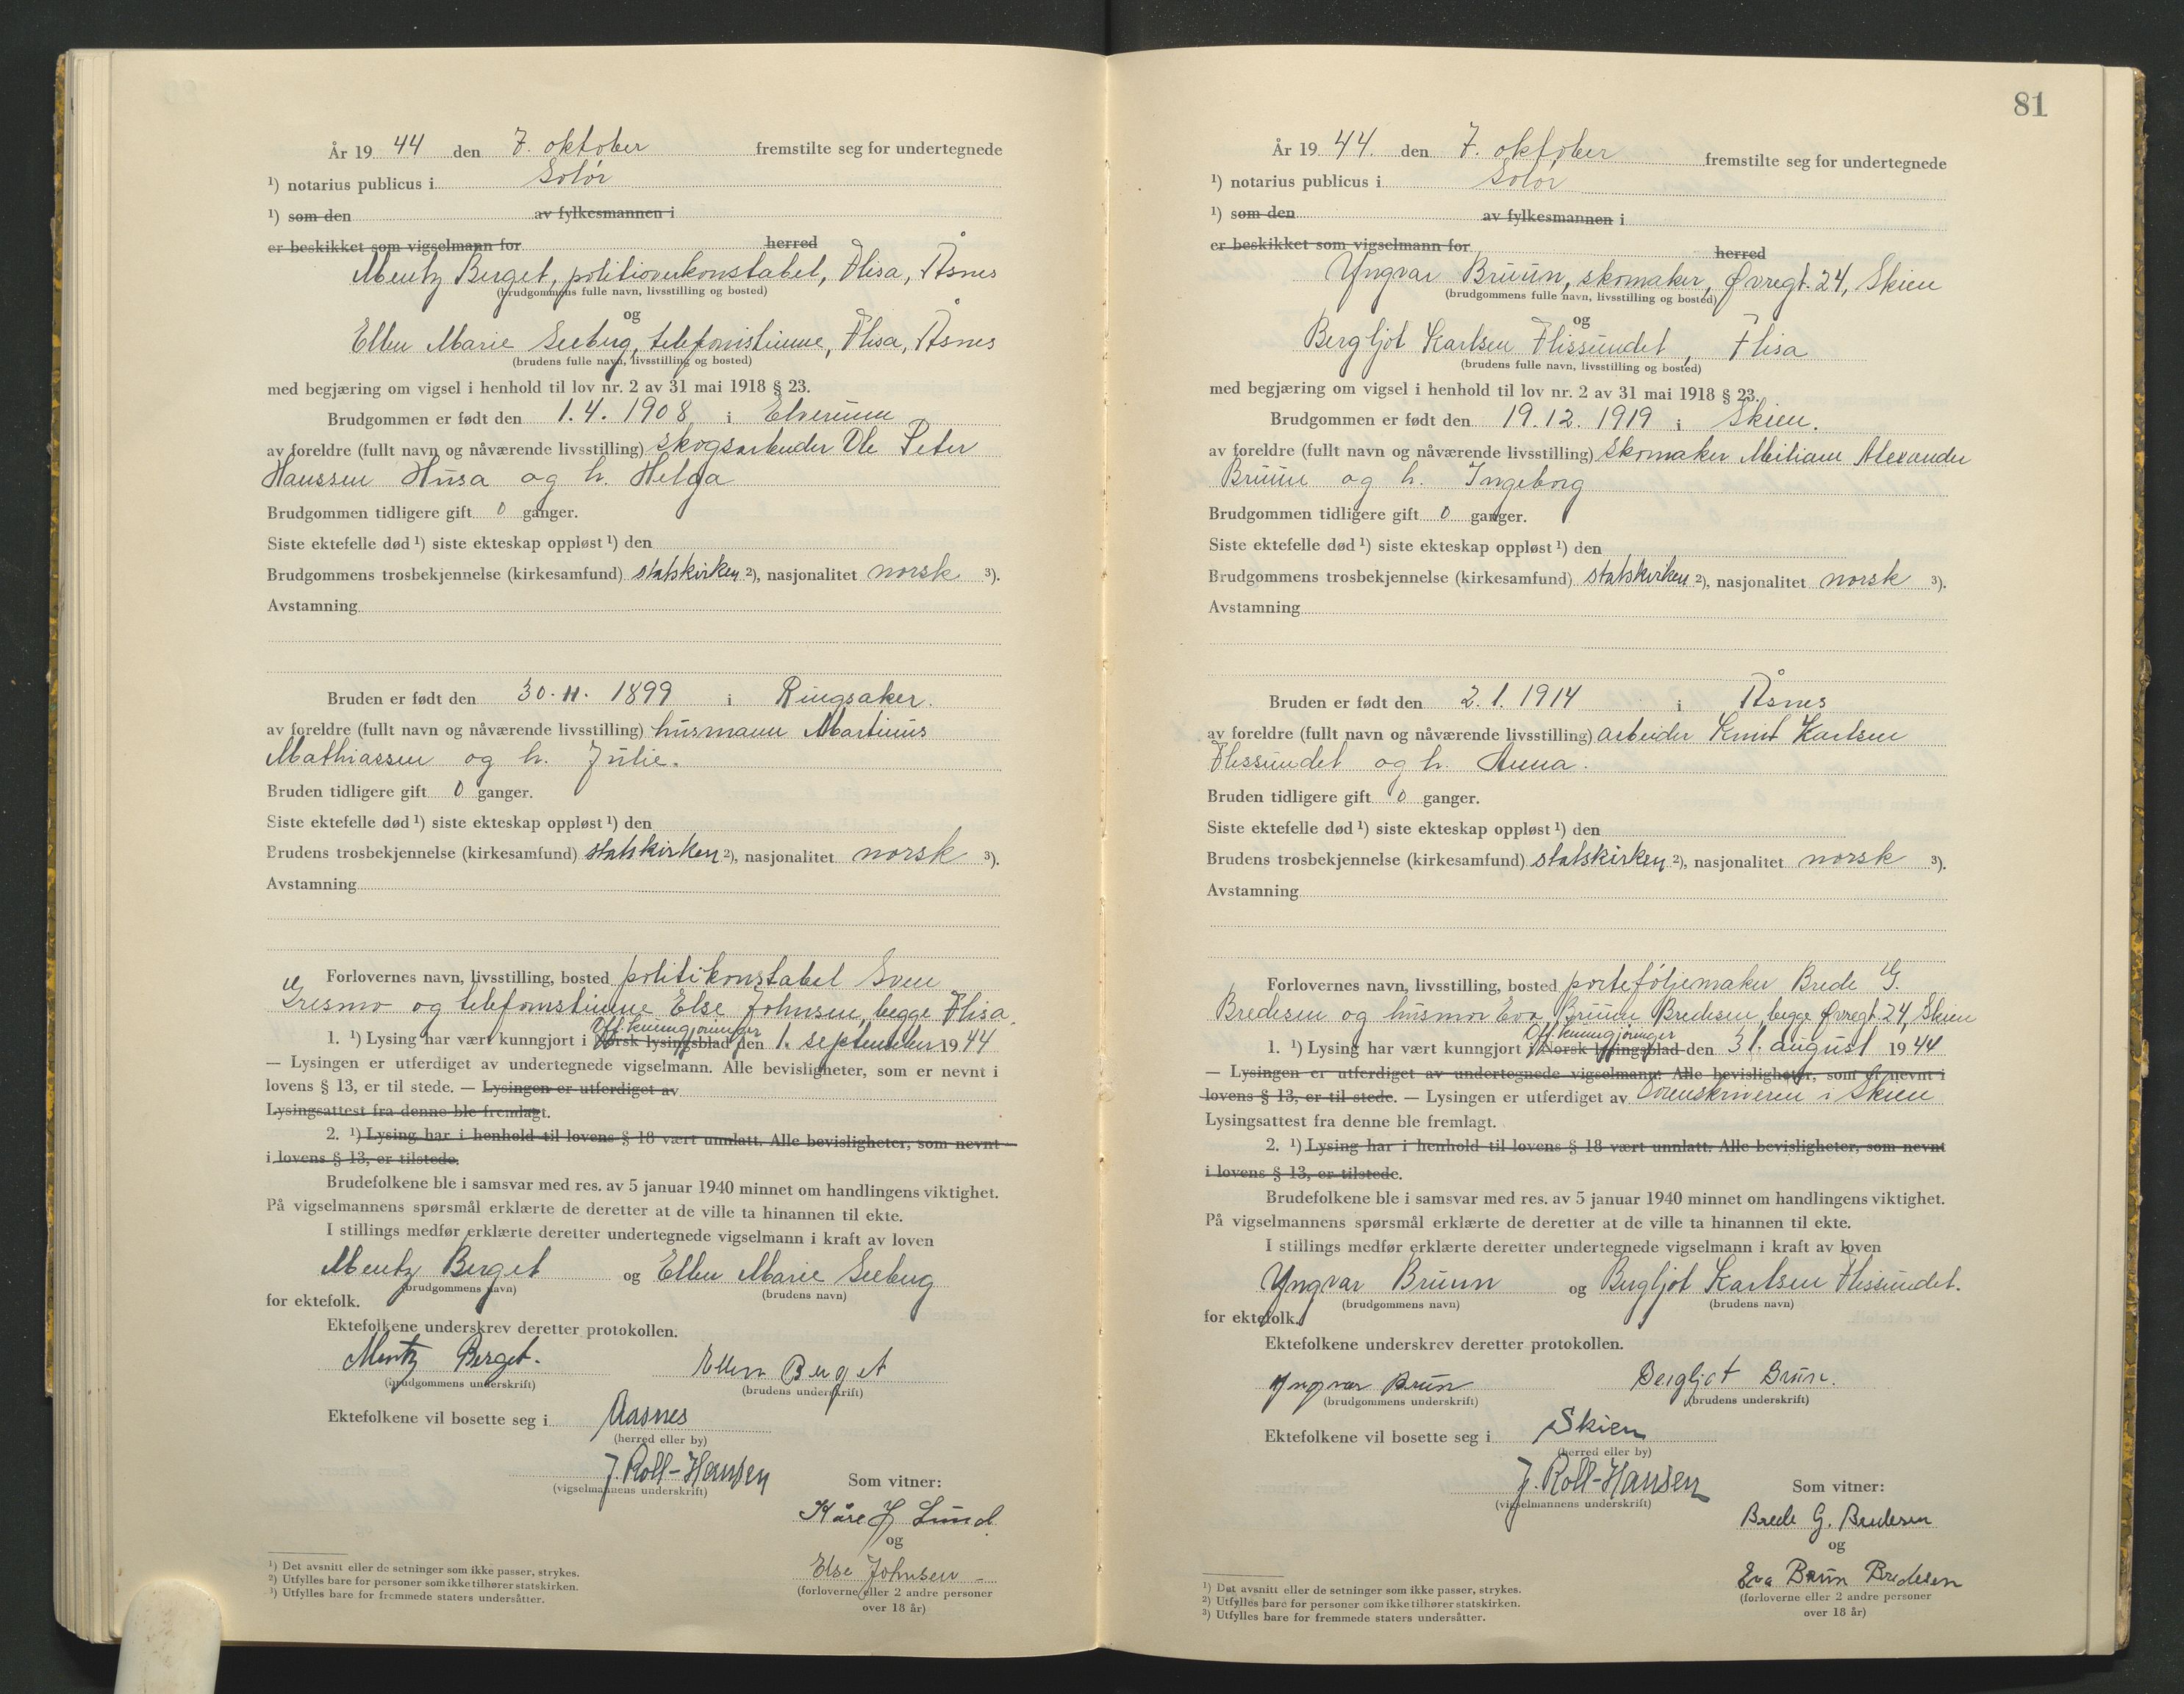 År 19 44 den 7. oktober fremstilte seg for undertegnede
¹) notarius publicus i Solør
¹) som den av fylkesmannen i
er beskikket som vigselmann for herred
Mentz Berget, politioverkonstabel, Flisa, Åsnes
(brudgommens fulle navn, livsstilling og bosted)
og
Ellen Marie Seeberg, telefonistinne, Flisa, Åsnes
(brudens fulle navn, livsstilling og bosted)
med begjæring om vigsel i henhold til lov nr. 2 av 31 mai 1918 § 23.
Brudgommen er født den 1.4.1908 i Elverum
av foreldre (fullt navn og nåværende livsstilling) skogsarbeider Ole Peter
Hanssen Husa og h. Helga
Brudgommen tidligere gift 0 ganger.
Siste ektefelle død ¹) siste ekteskap oppløst ¹) den
Brudgommens trosbekjennelse (kirkesamfund) statskirken ²), nasjonalitet norsk ³).
Avstamning
Bruden er født den 30.11.1899 i Ringsaker.
av foreldre (fullt navn og nåværende livsstilling) husmann Martinus
Mathiassen og h. Julie.
Bruden tidligere gift 0 ganger.
Siste ektefelle død ¹) siste ekteskap oppløst ¹) den
Brudens trosbekjennelse (kirkesamfund) statskirken ²), nasjonalitet norsk ³).
Avstamning
Forlovernes navn, livsstilling, bosted politikonstabel Sven
Gresmo og telefonistinne Else Johnsen, begge Flisa.
Off. kunngjøringer
1. ¹) Lysing har vært kunngjort i Norsk lysingsblad den 1. september 19 44
— Lysingen er utferdiget av undertegnede vigselmann. Alle bevisligheter, som er nevnt i
lovens § 13, er til stede. — Lysingen er utferdiget av
Lysingsattest fra denne ble fremlagt.
2. ¹) Lysing har i henhold til lovens § 18 vært unnlatt. Alle bevisligheter, som nevnt
i lovens § 13, er tilstede.
Brudefolkene ble i samsvar med res. av 5 januar 1940 minnet om handlingens viktighet.
På vigselmannens spørsmål erklærte de deretter at de ville ta hinannen til ekte.
I stillings medfør erklærte deretter undertegnede vigselmann i kraft av loven
Mentz Berget og Ellen Marie Seeberg
(brudgommens navn) (brudens navn)
for ektefolk.
Ektefolkene underskrev deretter protokollen.
Mentz Berget. Ellen Berget
(brudgommens underskrift) (brudens underskrift)
Ektefolkene vil bosette seg i Aasnes
(herred eller by)
J. Roll-Hansen
(vigselmannens underskrift)
Som vitner:
Kåre J Lund
og
Else Johnsen
(forloverne eller 2 andre personer
over 18 år)
¹) Det avsnitt eller de setninger som ikke passer, strykes.
²) Utfylles bare for personer som ikke tilhører statskirken.
³) Utfylles bare for fremmede staters undersåtter.
81
År 19 44. den 7. oktober fremstilte seg for undertegnede
¹) notarius publicus i Solør
¹) som den av fylkesmannen i
er beskikket som vigselmann for herred
Yngvar Bruun, skomaker, Øvregt. 24, Skien
(brudgommens fulle navn, livsstilling og bosted)
og
Bergljot Karlsen Flissundet, Flisa
(brudens fulle navn, livsstilling og bosted)
med begjæring om vigsel i henhold til lov nr. 2 av 31 mai 1918 § 23.
Brudgommen er født den 19.12.1919 i Skien.
av foreldre (fullt navn og nåværende livsstilling) skomaker Alexander
Bruun og h. Ingeborg
Brudgommen tidligere gift 0 ganger.
Siste ektefelle død ¹) siste ekteskap oppløst ¹) den
Brudgommens trosbekjennelse (kirkesamfund) statskirken ²), nasjonalitet norsk ³).
Avstamning
Bruden er født den 2.1.1914 i Åsnes
av foreldre (fullt navn og nåværende livsstilling) arbeider Knut Karlsen
Flissundet og h. Anna.
Bruden tidligere gift 0 ganger.
Siste ektefelle død ¹) siste ekteskap oppløst ¹) den
Brudens trosbekjennelse (kirkesamfund) statskirken ²), nasjonalitet norsk ³).
Avstamning
Forlovernes navn, livsstilling, bosted porteføljemaker Brede G.
Bredesen og husmor Eva Bruun Bredesen, begge Øvregt 24, Skien
Off. kunngjøringer
1. ¹) Lysing har vært kunngjort i Norsk lysingsblad den 31. august 19 44
— Lysingen er utferdiget av undertegnede vigselmann. Alle bevisligheter, som er nevnt i
lovens § 13, er til stede. — Lysingen er utferdiget av Sorenskriveren i Skien
Lysingsattest fra denne ble fremlagt.
2. ¹) Lysing har i henhold til lovens § 18 vært unnlatt. Alle bevisligheter, som nevnt
i lovens § 13, er tilstede.
Brudefolkene ble i samsvar med res. av 5 januar 1940 minnet om handlingens viktighet.
På vigselmannens spørsmål erklærte de deretter at de ville ta hinannen til ekte.
I stillings medfør erklærte deretter undertegnede vigselmann i kraft av loven
Yngvar Bruun og Bergljot Karlsen Flissundet.
(brudgommens navn) (brudens navn)
for ektefolk.
Ektefolkene underskrev deretter protokollen.
Yngvar Brun Bergljot Brun.
(brudgommens underskrift) (brudens underskrift)
Ektefolkene vil bosette seg i Skien
(herred eller by)
J. Roll-Hansen
(vigselmannens underskrift)
Som vitner:
Brede G. Bredesen
og
Eva Brun Bredesen
(forloverne eller 2 andre personer
over 18 år)
¹) Det avsnitt eller de setninger som ikke passer, strykes.
²) Utfylles bare for personer som ikke tilhører statskirken.
³) Utfylles bare for fremmede staters undersåtter.